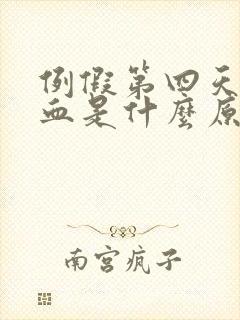 例假第四天
血是什麼原
南宫疯子